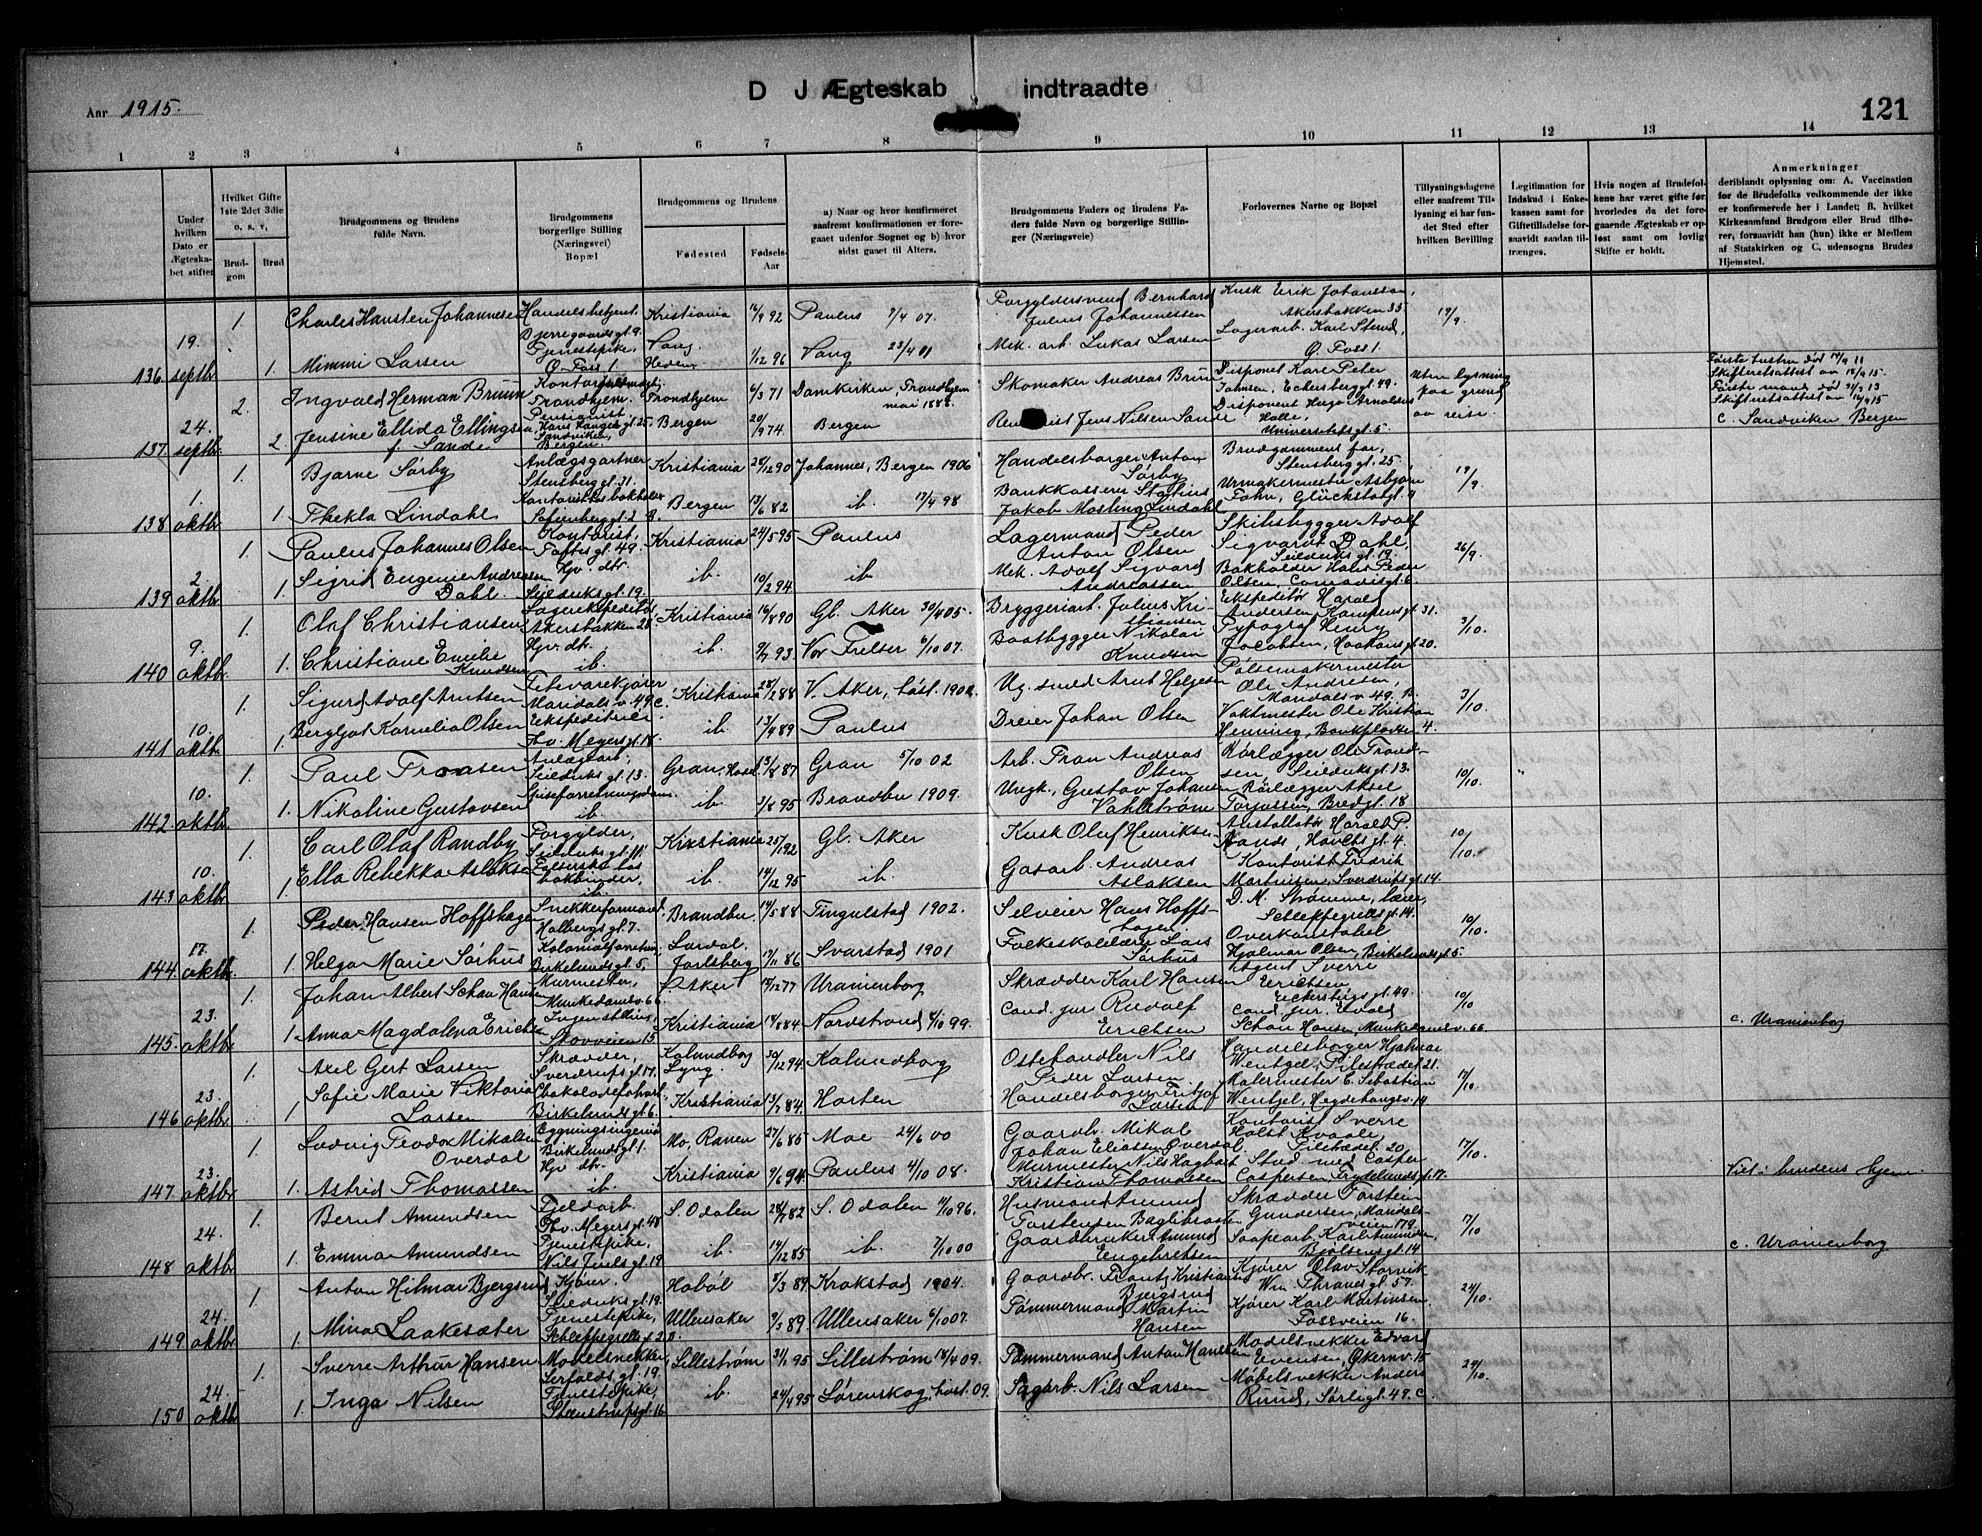 D J Ægteskab indtraadte
Aar 1915.
121
1 2 3 4 5 6 7 8 9 10 11 12 13 14
Under hvilken Dato er Ægteskabet stiftet
Hvilket Gifte 1ste 2det 3die o. s. v,
Brudgom
Brud
Brudgommens og Brudens fulde Navn.
Brudgommens borgerlige Stilling (Næringsvei) Bopæl
Brudgommens og Brudens
Fødested
Fødsels-Aar
a) Naar og hvor konfirmeret saafremt konfirmationen er foregaaet udenfor Sognet og b) hvor sidst gaaet til Alters.
Brudgommens Faders og Brudens Faders fulde Navn og borgerlige Stillinger (Næringsveie)
Forlovernes Navne og Bopæl
Tillysningsdagene eller saafremt Tillysning ei har fundet Sted efter hvilken Bevilling
Legitimation for Indskud i Enkekassen samt for Giftetilladelse forsaavidt saadan tiltrænges.
Hvis nogen af Brudefolkene har været gifte før hvorledes da det foregaaende Ægteskab er opløst samt om lovligt Skifte er holdt.
Anmerkninger
deriblandt oplysning om: A. Vaccination for de Brudefolks vedkommende der ikke er konfirmerede her i Landet; B. hvilket Kirkesamfund Brudgom eller Brud tilhører, forsaavidt han (hun) ikke er Medlem af Statskirken og C, udensogns Brudes Hjemsted.
136 19. septb. 1. Charles Hansten Johannesen Handelsbetjent. Bjerregaardsgt 9. Kristiania 14/9 92 Paulus 7/4 07. Forgyldersvend Bernhard Julius Johannessen Kusk Erik Johansson, Akersbakken 35 19/9.
1. Mimmi Larsen Tjenestepike, Ø. Foss 1. Vang. Hedem. 1/12 96 Vang 23/4 11 Mek. arb. Lukas Larsen Lagerarb. Karl Sterud, Ø. Foss 1.
137 24. septbr. 2. Ingvald Herman Bruun Trondhjem. Trondhjem 6/3 71 Domkirken, Trondhjem mai 1888. Skomaker Andreas Bruun Disponent Kare Peter Johnsen, Eckersberg gt. 49. Uten lysning paa grund av reise.
Første hustru død 14/9 11
Skifteretsattest av 18/9 15.
Første mand død 21/9 13
Skifteretsattest av 16/9 15
2 Jensine Ellida Ellingsen f. Sande Pensionist, Hans Hauges gt. 25, Sandviken, Bergen Bergen 20/9 74 Bergen Jens Nilsen Sande Disponent Hugo Arnoldus Holle, Universitetsgt. 5 c. Sandviken Bergen
138 1. oktbr. 1. Bjarne Sørby Anlægsgartner Stensberg gt. 31. Kristiania 28/12 90 Johannes, Bergen 1906 Handelsborger Anton Sørby Brudgommens far, Stensberg gt. 25. 19/9.
1. Thekla Lindahl Sofienberggt. 2 B. Bergen 13/6 82 ib. 17/4 98 Bankkasserer Statius Jakob Mosling Lindahl Urmakermester Asbjørn Glückstadgt. 9
139 2. oktbr. 1. Paulus Johannes Olsen Kontorist, Toftes gt. 49. Kristiania 24/5 95 Paulus Lagermand Peder Anton Olsen Skibsbygger Adolf Sigvardt Dahl, Seilduksgt. 19. 26/9.
1. Sigrid Eugenie Andreassen Dahl. Hjv. dtr. Seilduksgt. 19. ib. 10/2 94 ib Mek. Adolf Sigvard Andreassen Bokholder Hans Peder Olsen, Conradisgt. 6.
140 9. oktbr. 1. Olaf Christiansen Lagerekspeditør, Akersbakken 28. Kristiania 16/8 90 Gl. Aker 30/4 05. Bryggeriarb. Julius Kristiansen Ekspeditør Harald Andersen, Kampensgt. 31. 3/10.
1. Christiane Emilie Knudsen Hjv. dtr. ib. ib. 9/7 93. Vor Frelser 6/10 07. Baatbygger Nikolai Knudsen Typograf Henry Jacobsen, Haakonsgt 20.
141 10. oktbr. 1. Sigurd Adolf Arntsen Fetevarekjører Maridalsv. 49 c. Kristiania 28/2 88 V. Aker, høst. 1902. Ug. smed Arnt Helgesen Pølsemakermester Ole Andresen, Maridals v. 49. B. 3/10.
1. Bergljot Kornelia Olsen Ekspeditrice. Thv. Meyersgt. 18. ib. 13/4 89 Paulus Dreier Johan Olsen Vaktmester Ole Kristian Henning, Bankpladsen 4.
142. 10. oktbr. 1. Paul Fransen Anlægsarb, Seilduksgt. 13. Gran, Hadel. 23/8 87 Gran 5/10 02 Arb. Fran Andreas Olsen Rørlægger Ole Trandsen, Seilduksgt. 13. 10/10.
1. Nikoline Gustavsen Spiseforretningsdam. ib. ib. 3/8 95 Brandbu 1909. Ungk., Gustav Johansen Vahlstrøm Rørlægger Aksel Torjussen, Bredgt. 18
143 10. oktbr. 1. Carl Olaf Randby Forgylder, Seilduksgt. 11 Kristiania 25/1 92 Gl. Aker Kusk Olaf Henriksen Installatør Harald P. Hauchsgt. 4. 10/10
1. Ella Rebekka Aslaksen ib. ib. 14/12 95 ib. Gasarb. Andreas Aslaksen Kontorist Fredrik Martinsen, Sverdrupsgt. 14.
144 17. oktbr. 1. Peder Hansen Hoffshagen Snekkerformand, Holbergs gt. 7. Brandbu. 14/5 88 Tingelstad 1902. Selveier Hans Hoffshagen D. M. Strømme, lærer, Schleppegrellsgt. 14. 10/10.
1. Helga Marie Sørhus Birkelunds gt. 5, Lardal, Jarlsberg 17/11 86 Svarstad 1901 Folkeskolelærer Lars Sørhus Overkonstabel Hjalmar Olsen, Birkelundsgt. 5.
145. 23. oktbr. 1. Johan Albert Schau Hansen Murmester, Munkedamsv. 66. Ø. Aker 17/12 77 Uranienborg Skrædder Karl Hansen Agent Sverre Erichsen, Eckersbergs gt. 49. 10/10
1 Anna Magdalena Erichsen Ingen stilling, Skovveien 15 Kristiania 18/8 84 Nordstrand 8/10 99. Cand. jur. Rudolf Erichsen Cand. jur. Evald Schau Hansen, Munkedamsv. 66. c. Uranienborg
146 23. oktbr. 1. Axel Gert Larsen Skrædder, Sverdrupsgt. 17. Kalundborg Lyng. 30/12 94. Kalundborg Ostehandler Nils Peder Larsen. Handelsborger Hjalmar Wentzel, Pilestrædet 21. 17/10.
1 Sofie Marie Viktoria Larsen Birkelunds gt. 6. Kristiania 13/7 84. Horten Handelsborger Fritjof Larsen Malermester C. Sebastian Wentzel, Hegdehaugsv. 14
147. 23. oktbr 1. Ludvig Teodor Mikalsen Overdal Bygningsingeniør Birkelunds gt. 1. Mo, Ranen 27/6 85 Moe 24/6 00 Gaardbr. Mikal Johan Eliassen Overdal Kontorist Sverre Holst Kvaale, Pilestrædet 20. 17/10.
1. Astrid Thomassen Hjv. dtr. ib. Kristiania 9/6 94 Paulus 4/10 08. Murmester Nils Hagbart Kristian Thomassen Stud. med Casper Caspersen, Frydenlundsgt. 17. Viet i brudens hjem.
148 24. oktbr. 1. Bernt Amundsen Fjeldarb. Thv. Meyersgt. 48 S. Odalen 28/7 82 S. Odalen 11/10 96. Husmand Amund Torstensen Baglibraaten Skrædder Torstein Gundersen, Maridalsveien 179. 17/10
1. Emma Amundsen Tjenestepike, Nils Juels gt. 19 ib. 14/12 85 ib. 7/10 00 Gaardbruker Amund Engebretsen Saapearb. Karl Amundsen, Bjølsens gt. 14 c. Uranienborg
149 24. oktbr 1. Anton Hilmar Bjergsrud Kjører. Seilduks gt. 19. Hobøl 5/3 89 Krakstad 1904. Gaardbr. Frantz Kristiansen Bjergsrud Kjører Olav Storvik Wm Thranes gt. 57. 24/10.
1. Mina Laakesæter Tjenestepike, Schleppegrells gt. 2 B. Ullensaker 9/3 89 Ullensaker 6/10 07. Tømmermand Martin Hansen Kjører Karl Martinsen, Fossveien 16.
150 24. oktbr 1. Sverre Arthur Hansen Møbelsnekker, gt. 19. Lillestrøm 31/1 95 Lillestrøm 18/4 09. Tømmermand Anton Hansen Modelsnekker Edvard Evensen, Økernv. 15 24/10.
1. Inga Nilsen Tjenestepike, Steenstrupsgt. 16 ib. 24/4 95 Lørenskog, høst. 09. Sagarb. Nils Larsen Møbelsnekker Anders Ruud, Sørligt. 49. C.